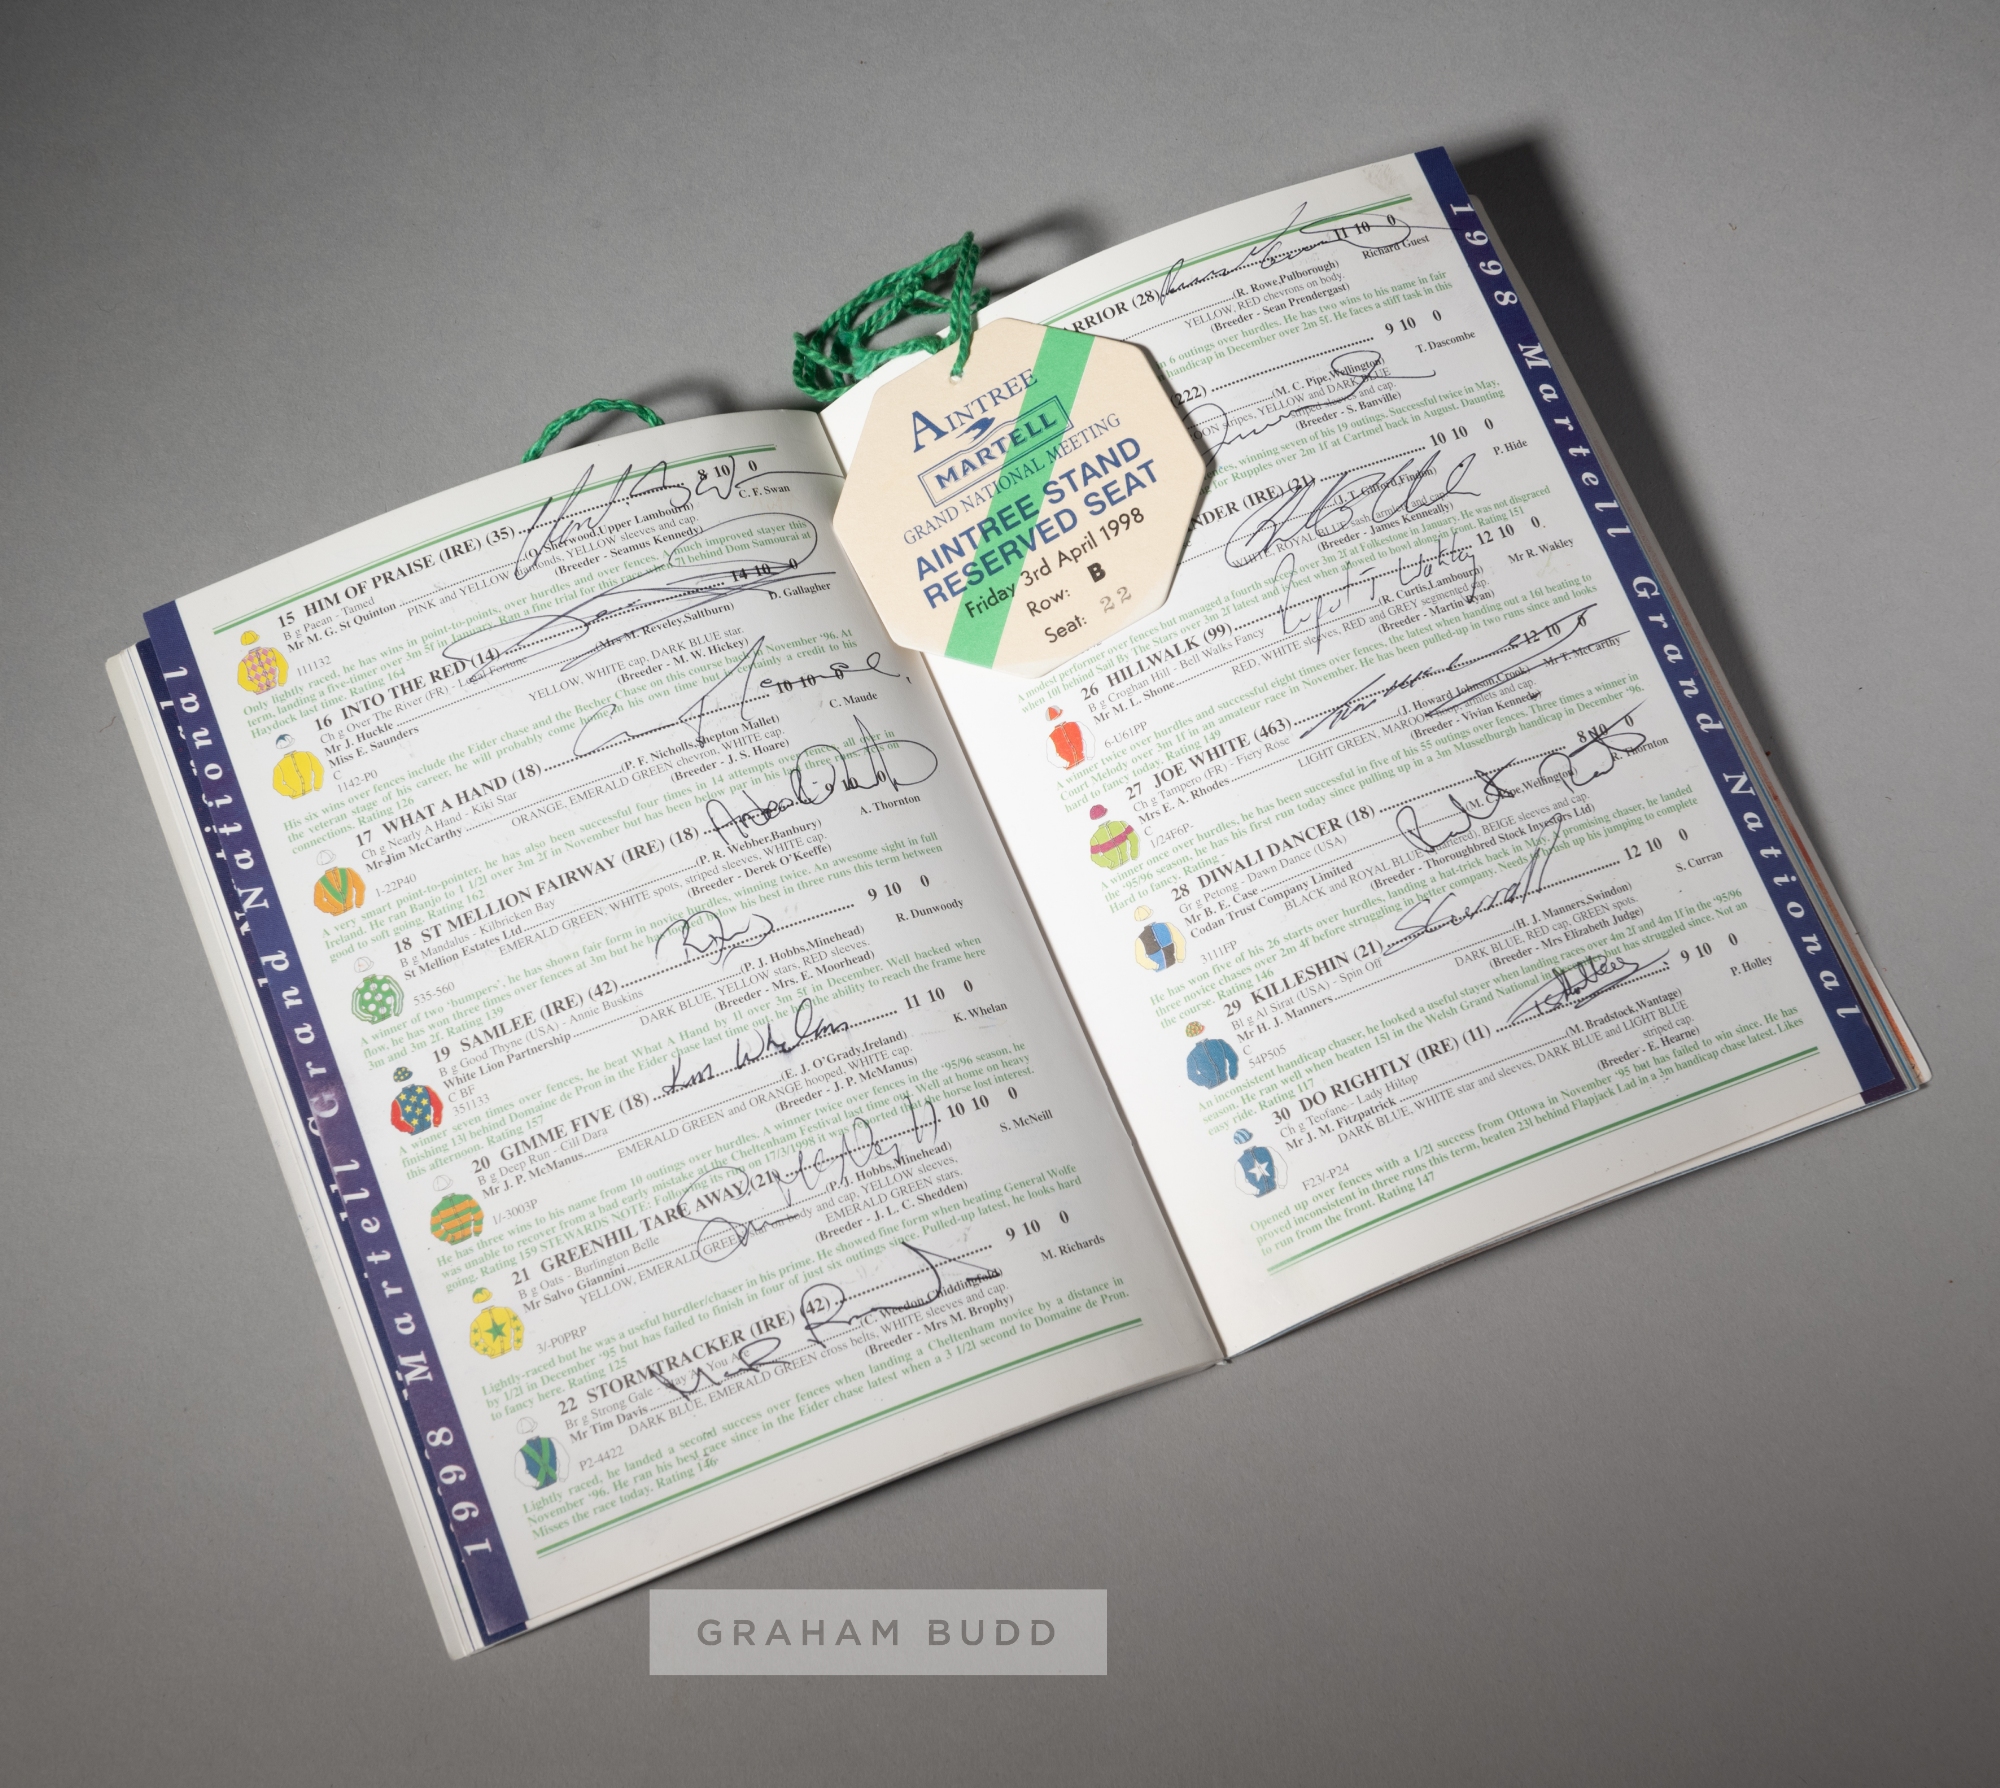 15 HIM OF PRAISE (IRE) (35) 8 10 0
B g Paean - Tamed C. F. Swan
Mr M. G. St Quinton (O. Sherwood,Upper Lambourn)
PINK and YELLOW diamonds, YELLOW sleeves and cap.
111132 (Breeder - Seamus Kennedy)
Lightly raced, he has wins in point-to-points, over hurdles and over fences. A much improved stayer this
term, landing a five-timer over 3m 5f in January. Ran a fine trial for this race when 7l behind Dom Samourai at
Haydock last time. Rating 164
16 INTO THE RED (14) 14 10 0
Ch g Over The River (FR) - Legal Fortune D. Gallagher
Mr J. Huckle (Mrs M. Reveley,Saltburn)
Miss E. Saunders YELLOW, WHITE cap, DARK BLUE star.
C (Breeder - M. W. Hickey)
1142-P0
His six wins over fences include the Eider chase and the Becher Chase on this course back in November '96. At
the veteran stage of his career, he will probably come home in his own time but is certainly a credit to his
connections. Rating 126
17 WHAT A HAND (18) 10 10 0
Ch g Nearly A Hand - Kiki Star C. Maude
Mr Jim McCarthy (P. F. Nicholls,Shepton Mallet)
ORANGE, EMERALD GREEN chevron, WHITE cap.
1-22P40 (Breeder - J. S. Hoare)
A very smart point-to-pointer, he has also been successful four times in 14 attempts over fences, all in
Ireland. He ran Banjo to 1 1/2l over 3m 2f in November but has been below par in his last three runs.
good to soft going. Rating 162
18 ST MELLION FAIRWAY (IRE) (18)
B g Mandalus - Kilbricken Bay A. Thornton
St Mellion Estates Ltd (P. R. Webber,Banbury)
EMERALD GREEN, WHITE spots, striped sleeves, WHITE cap.
535-560 (Breeder - Derek O'Keeffe)
A winner of two 'bumpers', he has shown fair form in novice hurdles, winning twice. An awesome sight in full
flow, he has won three times over fences at 3m but he has not shown his best in three runs this term between
3m and 3m 2f. Rating 139
19 SAMLEE (IRE) (42) 9 10 0
B g Good Thyne (USA) - Annie Buskins R. Dunwoody
White Lion Partnership (P. J. Hobbs,Minehead)
C BF DARK BLUE, YELLOW stars, RED sleeves.
351133 (Breeder - Mrs. E. Moorhead)
A winner seven times over fences, he beat What A Hand by 11 over 3m 5f in December. Well backed when
finishing 13l behind Domaine de Pron in the Eider chase last time out, he has the ability to reach the frame here
this afternoon. Rating 157
20 GIMME FIVE (18) 11 10 0
B g Deep Run - Cill Dara K. Whelan
Mr J. P. McManus (E. J. O'Grady,Ireland)
EMERALD GREEN and ORANGE hooped, WHITE cap.
1/-3003P (Breeder - J. P. McManus)
He has three wins to his name from 10 outings over hurdles. A winner twice over fences in the '95/96 season, he
was unable to recover from a bad early mistake at the Cheltenham Festival last time out. Well at home on heavy
going. Rating 159 STEWARDS NOTE: Following its run on 17/3/1998 it was reported that the horse lost interest.
21 GREENHIL TARE AWAY (21) 10 10 0
B g Oats - Burlington Belle S. McNeill
Mr Salvo Giannini (P. J. Hobbs,Minehead)
YELLOW, EMERALD GREEN star on body and cap, YELLOW sleeves,
EMERALD GREEN stars.
3/-P0PRP (Breeder - J. L. C. Shedden)
Lightly-raced but he was a useful hurdler/chaser in his prime. He showed fine form when beating General Wolfe
by 1/2l in December '95 but has failed to finish in four of just six outings since. Pulled-up latest, he looks hard
to fancy here. Rating 125
22 STORMTRACKER (IRE) (42) 9 10 0
Br g Strong Gale - Stay As You Are M. Richards
Mr Tim Davis (C. Weedon,Chiddingfold)
DARK BLUE, EMERALD GREEN cross belts, WHITE sleeves and cap.
P2-4422 (Breeder - Mrs M. Brophy)
Lightly raced, he landed a second success over fences when landing a Cheltenham novice by a distance in
November '96. He ran his best race since in the Eider chase latest when a 3 1/2l second to Domaine de Pron.
Misses the race today. Rating 146
1998 Martell Grand National
AINTREE
MARTELL
GRAND NATIONAL MEETING
AINTREE STAND
RESERVED SEAT
Friday 3rd April 1998
Row: B
Seat: 22
ARRIOR (28) 11 10 0
Richard Guest
(R. Rowe,Pulborough)
YELLOW, RED chevrons on body.
(Breeder - Sean Prendergast)
n 6 outings over hurdles. He has two wins to his name in fair
handicap in December over 2m 5f. He faces a stiff task in this
(222) 9 10 0
T. Dascombe
(M. C. Pipe,Wellington)
OON stripes, YELLOW and DARK BLUE
striped sleeves and cap.
(Breeder - S. Banville)
ces, winning seven of his 19 outings. Successful twice in May,
for Rupples over 2m 1f at Cartmel back in August. Daunting
NDER (IRE) (21) 10 10 0
P. Hide
(J. T. Gifford,Findon)
WHITE, ROYAL BLUE sash, armlets and cap.
(Breeder - James Kenneally)
A modest performer over fences but managed a fourth success over 3m 2f at Folkestone in January. He was not disgraced
when 10l behind Sail By The Stars over 3m 2f latest and is best when allowed to bowl along in front. Rating 151
26 HILLWALK (99) 12 10 0
B g Croghan Hill - Bell Walks Fancy Mr R. Wakley
Mr M. L. Shone (R. Curtis,Lambourn)
RED, WHITE sleeves, RED and GREY segmented cap.
6-U61PP (Breeder - Martin Ryan)
A winner twice over hurdles and successful eight times over fences, the latest when handing out a 16l beating to
Court Melody over 3m 1f in an amateur race in November. He has been pulled-up in two runs since and looks
hard to fancy today. Rating 149
27 JOE WHITE (463) 12 10 0
Ch g Tampero (FR) - Fiery Rose Mr T. McCarthy
Mrs E. A. Rhodes (J. Howard Johnson,Crook)
C LIGHT GREEN, MAROON hoop, armlets and cap.
1/24F6P- (Breeder - Vivian Kennedy)
A winner once over hurdles, he has been successful in five of his 55 outings over fences. Three times a winner in
the '95/96 season, he has his first run today since pulling up in a 3m Musselburgh handicap in December '96.
Hard to fancy. Rating -
28 DIWALI DANCER (18) 8 10 0
Gr g Petong - Dawn Dance (USA) R. Thornton
Mr B. E. Case (M. C. Pipe,Wellington)
Codan Trust Company Limited
BLACK and ROYAL BLUE (quartered), BEIGE sleeves and cap.
3111FP (Breeder - Thoroughbred Stock Investors Ltd)
He has won five of his 26 starts over hurdles, landing a hat-trick back in May. A promising chaser, he landed
three novice chases over 2m 4f before struggling in better company. Needs to brush up his jumping to complete
the course. Rating 146
29 KILLESHIN (21) 12 10 0
Bl g Al Sirat (USA) - Spin Off S. Curran
Mr H. J. Manners (H. J. Manners,Swindon)
C DARK BLUE, RED cap, GREEN spots.
54P505 (Breeder - Mrs Elizabeth Judge)
An inconsistent handicap chaser, he looked a useful stayer when landing races over 4m 2f and 4m 1f in the '95/96
season. He ran well when beaten 15l in the Welsh Grand National in but has struggled since. Not an
easy ride. Rating 117
30 DO RIGHTLY (IRE) (11) 9 10 0
Ch g Teofane - Lady Hiltop P. Holley
Mr J. M. Fitzpatrick (M. Bradstock,Wantage)
DARK BLUE, WHITE star and sleeves, DARK BLUE and LIGHT BLUE
striped cap.
F23/-P24 (Breeder - E. Hearne)
Opened up over fences with a 1/2l success from Ottowa in November '95 but has failed to win since. He has
proved inconsistent in three runs this term, beaten 23l behind Flapjack Lad in a 3m handicap chase latest. Likes
to run from the front. Rating 147
1998 Martell Grand National
GRAHAM BUDD